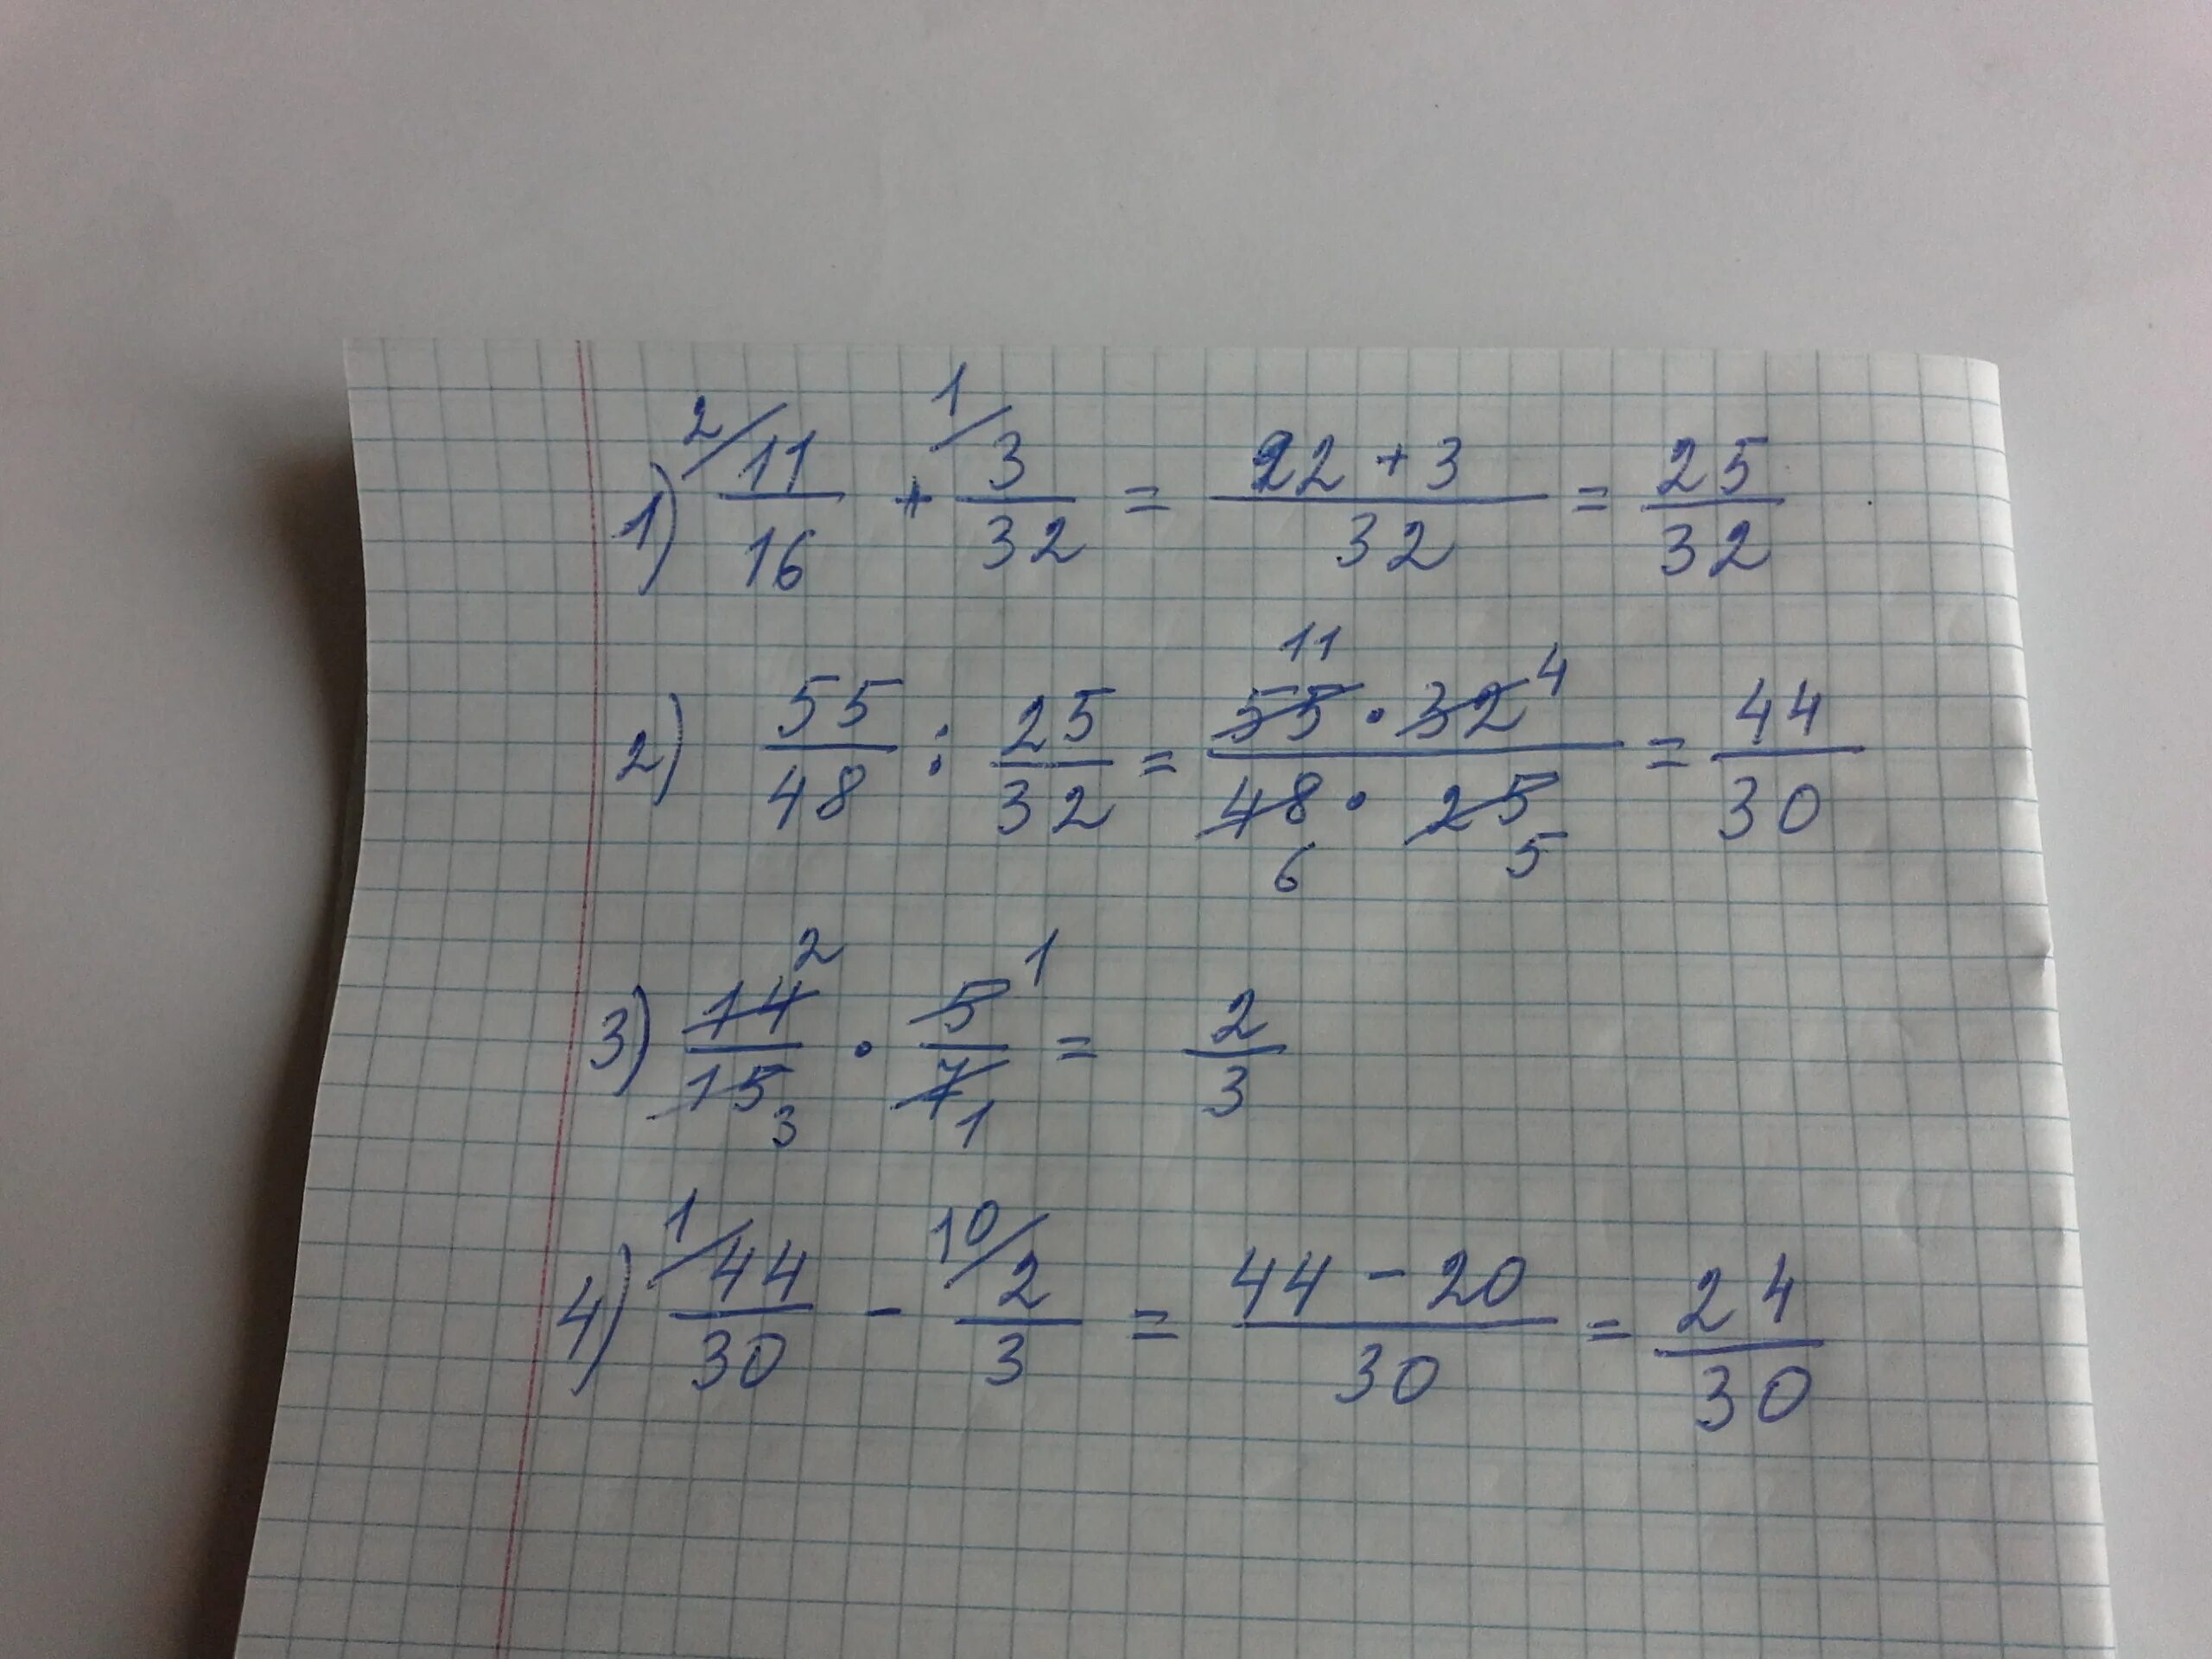 1) 2/ 11/16 + 1/ 3/32 = 22 + 3/32 = 25/32
2) 55/48 : 25/32 = 55 11 · 32 4/48 6 · 25 5 = 44/30
3) 14 2/15 3 · 5 1/7 1 = 2/3
4) 1/ 44/30 - 10/ 2/3 = 44 - 20/30 = 24/30